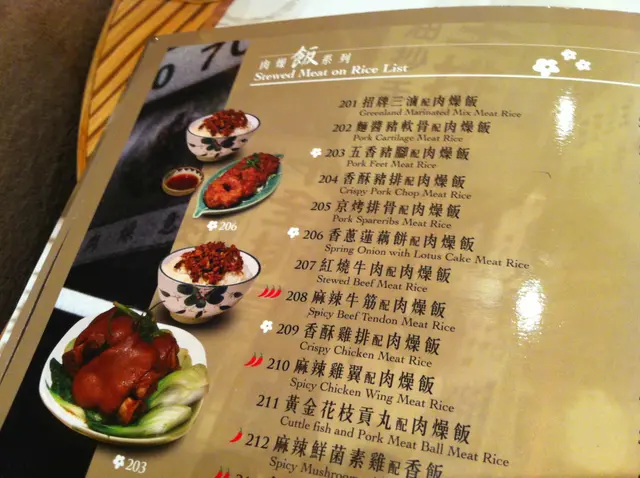 肉燥飯系列
Stewed Meat on Rice List
201 招牌三滷配肉燥飯
Greenland Marinated Mix Meat Rice
202 麵醬豬軟骨配肉燥飯
Pork Cartilage Meat Rice
203 五香豬腳配肉燥飯
Pork Feet Meat Rice
204 香酥豬排配肉燥飯
Crispy Pork Chop Meat Rice
205 京烤排骨配肉燥飯
Pork Spareribs Meat Rice
206 香蔥蓮藕餅配肉燥飯
Spring Onion with Lotus Cake Meat Rice
207 紅燒牛肉配肉燥飯
Stewed Beef Meat Rice
208 麻辣牛筋配肉燥飯
Spicy Beef Tendon Meat Rice
209 香酥雞排配肉燥飯
Crispy Chicken Meat Rice
210 麻辣雞翼配肉燥飯
Spicy Chicken Wing Meat Rice
211 黃金花枝貢丸配肉燥飯
Cuttle fish and Pork Meat Ball Meat Rice
212 麻辣鮮菌素雞配香飯
Spicy Mushroom
206
203